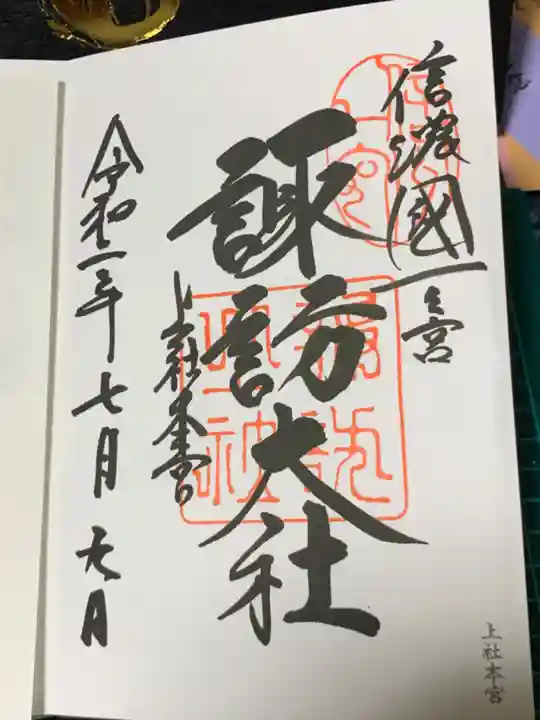 信濃國一之宮
諏訪大社
上社本宮
令和二年七月
上社本宮